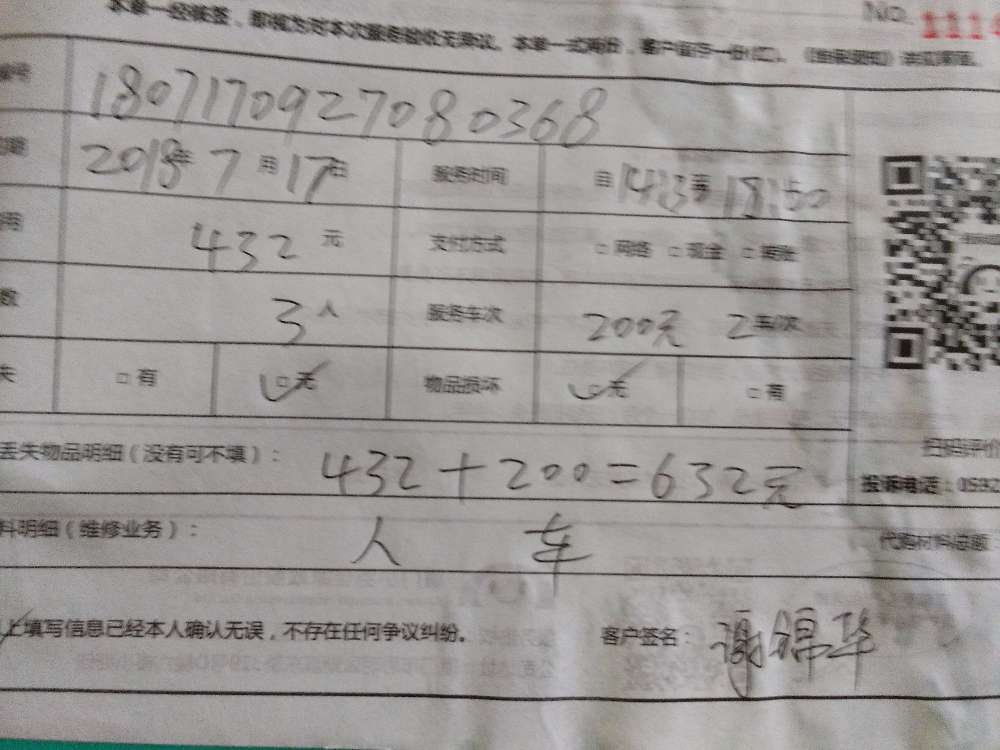 本单一经核签，即视为对本次服务验收无异议。本单一式两份，客户留存一份(红)。
No. 1114
号
180717092708036​8
2018年7月17日
服务时间
自
432 元
支付方式
□ 网络 □ 现金 □ 转账
数
3 人
服务车次
200元 2车/次
失
□ 有
□ 无
物品损坏
□ 无
□ 有
丢失物品明细（没有可不填）：
432+200=632元
扫码评价
投诉电话：0592
料明细（维修业务）：
人 车
代购材料总额
上填写信息已经本人确认无误，不存在任何争议纠纷。
客户签名：谢锦华